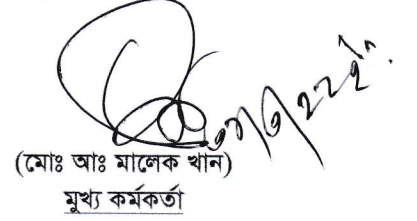 (মোঃ আঃ মালেক খান)
মুখ্য কর্মকর্তা